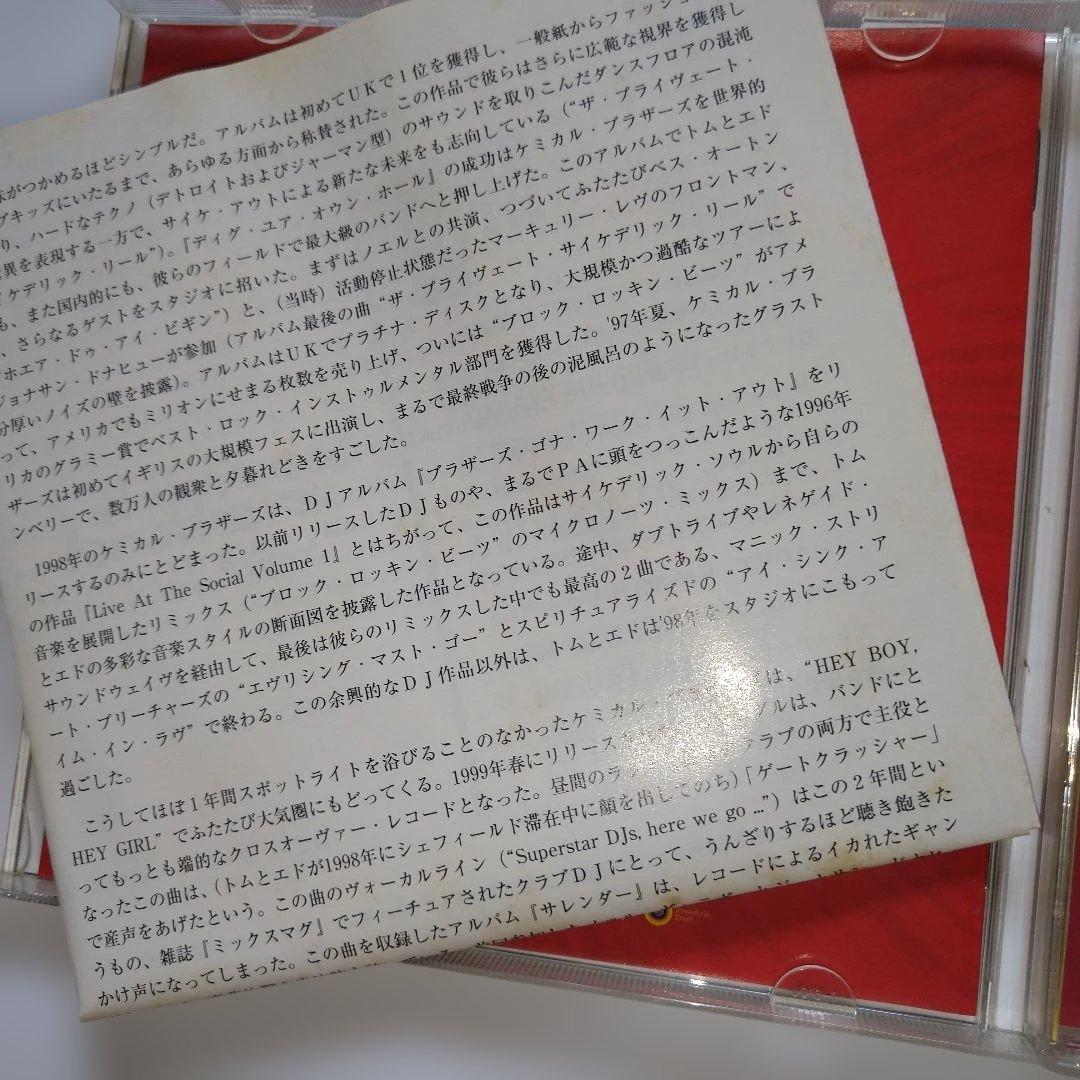 味がつかめるほどシンプルだ。アルバムは初めてUKで1位を獲得し、一般紙からファッショ
キッズにいたるまで、あらゆる方面から称賛された。この作品で彼らはさらに広範な視界を獲得し
り、ハードなテクノ（デトロイトおよびジャーマン型）のサウンドを取りこんだダンスフロアの混沌
異を表現する一方で、サイケ・アウトによる新たな未来をも志向している（“ザ・プライヴェート・
イケデリック・リール”）。『ディグ・ユア・オウン・ホール』の成功はケミカル・ブラザーズを世界的
も、また国内的にも、彼らのフィールドで最大級のバンドへと押し上げた。このアルバムでトムとエド
、さらなるゲストをスタジオに招いた。まずはノエルとの共演、つづいてふたたびベス・オートン
ホエア・ドゥ・アイ・ビギン”）と、（当時）活動停止状態だったマーキュリー・レヴのフロントマン、
ジョナサン・ドナヒューが参加（アルバム最後の曲“ザ・プライヴェート・サイケデリック・リール”で
分厚いノイズの壁を披露）。アルバムはUKでプラチナ・ディスクとなり、大規模かつ過酷なツアーによ
って、アメリカでもミリオンにせまる枚数を売り上げ、ついには“ブロック・ロッキン・ビーツ”がアメ
リカのグラミー賞でベスト・ロック・インストゥルメンタル部門を獲得した。'97年夏、ケミカル・ブラ
ザーズは初めてイギリスの大規模フェスに出演し、まるで最終戦争の後の泥風呂のようになったグラスト
ンベリーで、数万人の観衆と夕暮れどきをすごした。
1998年のケミカル・ブラザーズは、DJアルバム『ブラザーズ・ゴナ・ワーク・イット・アウト』をリ
リースするのみにとどまった。以前リリースしたDJものや、まるでPAに頭をつっこんだような1996年
の作品『Live At The Social Volume 1』とはちがって、この作品はサイケデリック・ソウルから自らの
音楽を展開したリミックス（“ブロック・ロッキン・ビーツ”のマイクロノーツ・ミックス）まで、トム
とエドの多彩な音楽スタイルの断面図を披露した作品となっている。途中、ダブトライブやレネゲイド・
サウンドウェイヴを経由して、最後は彼らのリミックスした中でも最高の2曲である、マニック・ストリ
ート・プリーチャーズの“エヴリシング・マスト・ゴー”とスピリチュアライズドの“アイ・シンク・ア
イム・イン・ラヴ”で終わる。この余興的なDJ作品以外は、トムとエドは'98年をスタジオにこもって
過ごした。
こうしてほぼ1年間スポットライトを浴びることのなかったケミカル・は、“HEY BOY,
HEY GIRL”でふたたび大気圏にもどってくる。1999年春にリリースルは、バンドにと
ってもっとも端的なクロスオーヴァー・レコードとなった。昼間のラクラブの両方で主役と
なったこの曲は、（トムとエドが1998年にシェフィールド滞在中に顔を出してのち）「ゲートクラッシャー」
で産声をあげたという。この曲のヴォーカルライン（“Superstar DJs, here we go ...”）はこの2年間とい
うもの、雑誌『ミックスマグ』でフィーチュアされたクラブDJにとって、うんざりするほど聴き飽きた
かけ声になってしまった。この曲を収録したアルバム『サレンダー』は、レコードによるイカれたギャン
Freestyle
Dust